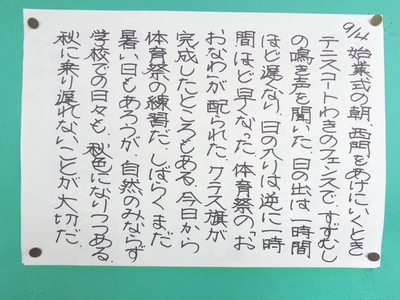 9/4 始業式の朝、西門をあけにいくとき
テニスコートわきのフェンスで、すずむし
の鳴き声を聞いた。日の出は一時間
ほど遅くなり、日の入りは逆に一時
間ほど早くなった。体育祭の「お
おなわ」が配られた。クラス旗が
完成したところもある。今日から
体育祭の練習だ。しばらくまだ
暑い日もあろうが、自然のみならず
学校での日々も、秋色になりつつある。
秋に乗り遅れないことが大切だ。